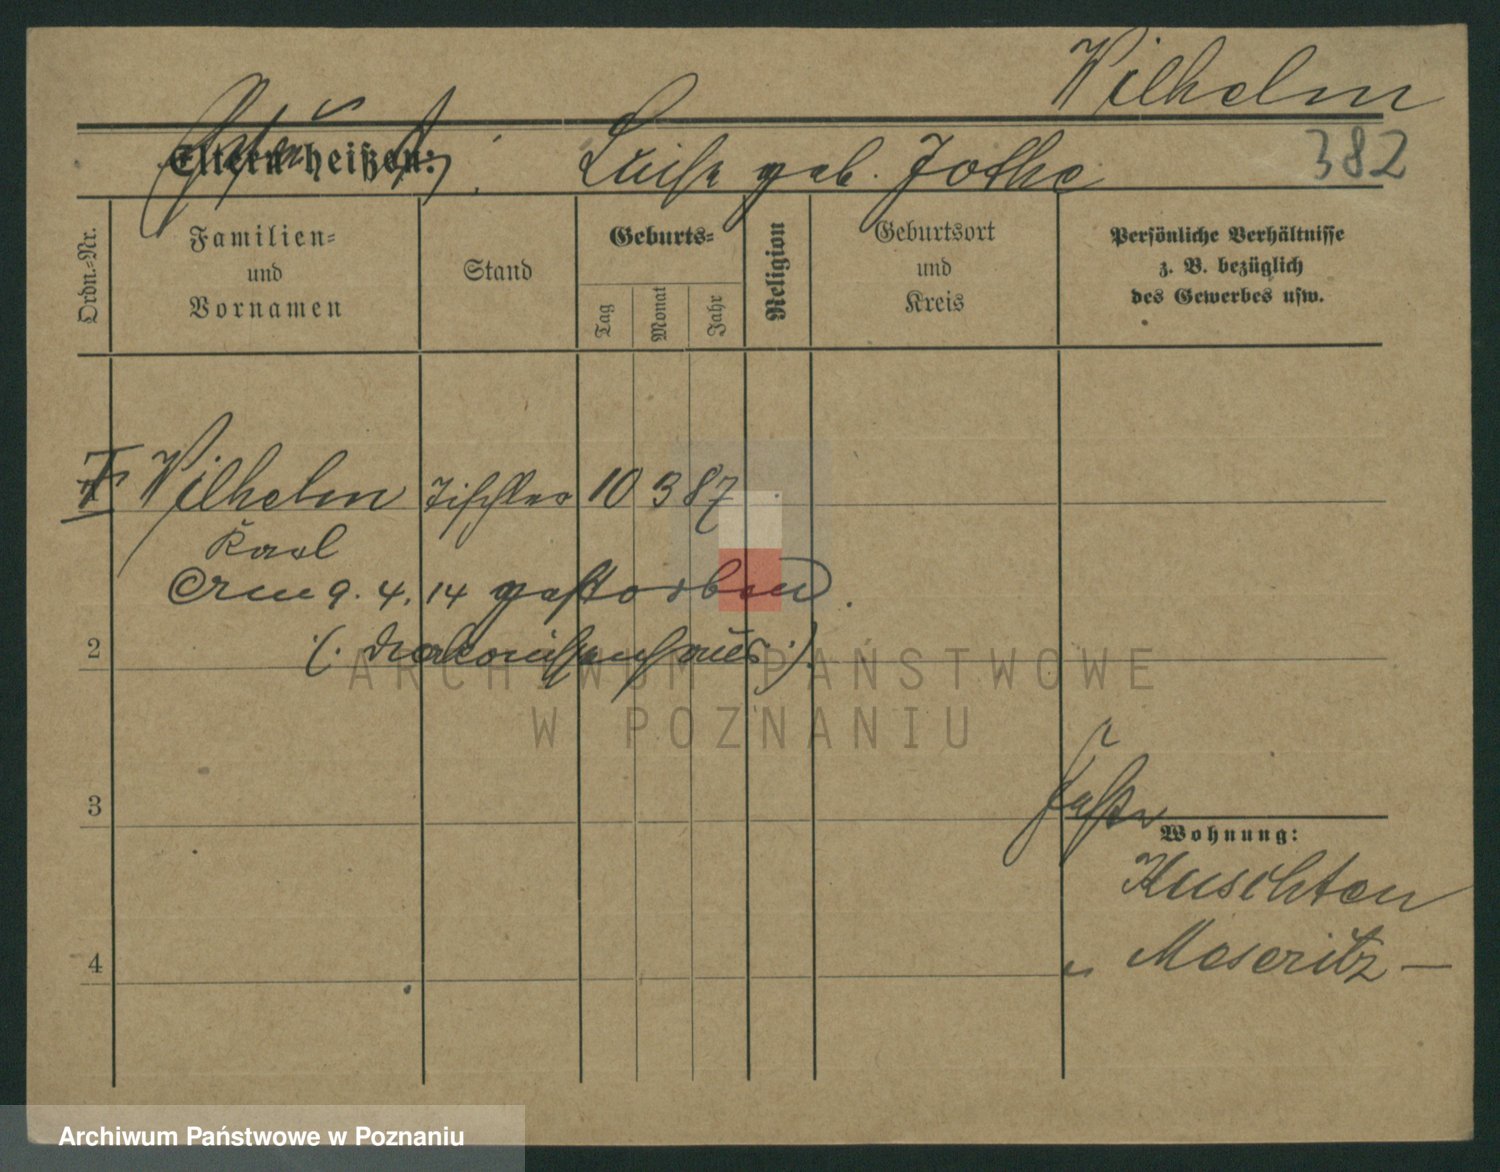 Wilhelm
Eltern heißen: Luise geb. Jothe
382
Ordn.-Nr.
Familien-
und
Vornamen
Stand
Geburts-
Tag
Monat
Jahr
Religion
Geburtsort
und
Kreis
Persönliche Verhältnisse
z. B. bezüglich
des Gewerbes usw.
Wilhelm Tischler 10 3 87
Karl
am 9. 4. 14 gestorben.
2
(. Diakonissenhaus .)
3
Wohnung:
Kuschten
4
Meseritz —
ARCHIWUM PAŃSTWOWE
W POZNANIU
Archiwum Państwowe w Poznaniu